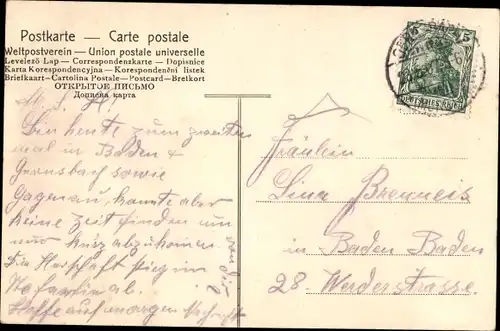 Postkarte — Carte postale
Weltpostverein — Union postale universelle
Levelező Lap — Correspondenzkarte — Dopisnice
Karta Korespondencyjna — Korespondenční listek
Briefkaart-Cartolina Postale-Postcard-Bretkort
ОТКРЫТОЕ ПИСЬМО
Дописна карта
5
DEUTSCHES REICH
Bin heute zum zweiten
mal in Baden &
Gernsbach sowie
Gagenau, konnte aber
keine Zeit finden um
nur kurz abzukommen.
Die Herrschaft stieg in
ab.
Hoffe auf morgen
Fräulein
Lina Brenneis
in Baden Baden
28. Werderstrasse.